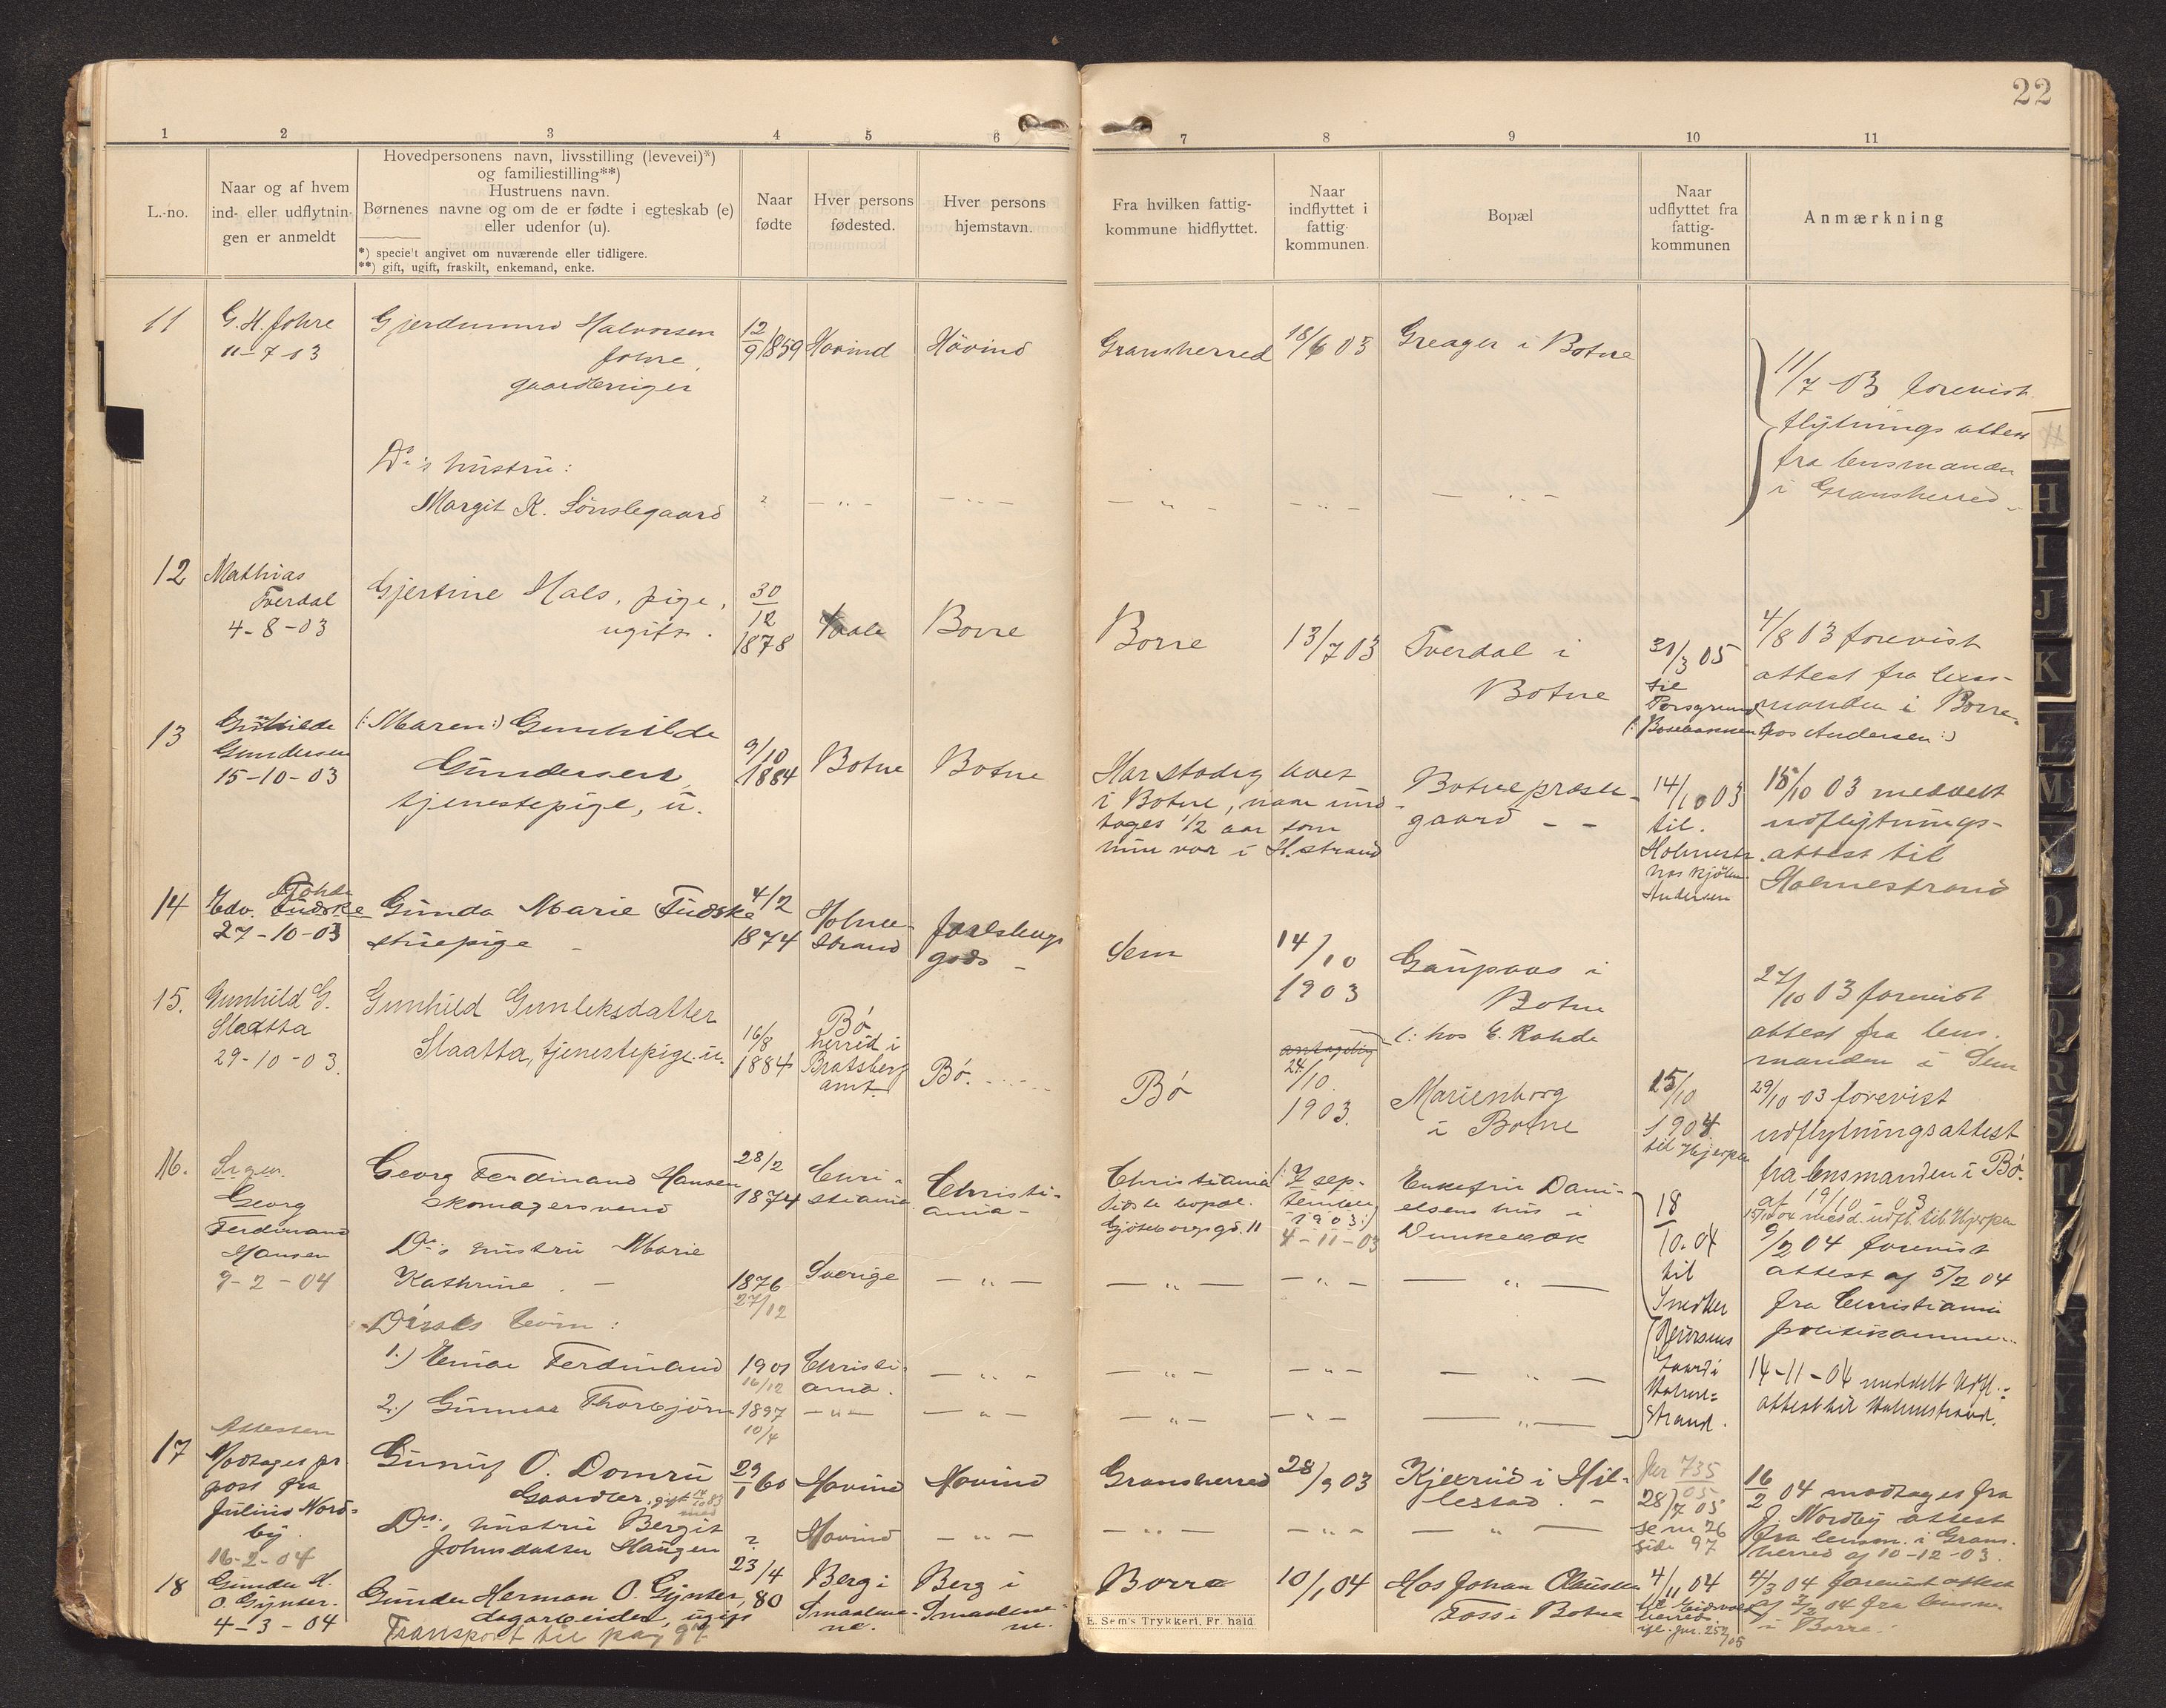 22
1 2 3 4 5 6 7 8 9 10 11
L.-no.
Naar og af hvem
ind- eller udflytnin-
gen er anmeldt
Hovedpersonens navn, livsstilling (levevei)*)
og familiestilling**)
Hustruens navn.
Børnenes navne og om de er fødte i egteskab (e)
eller udenfor (u).
*) specielt angivet om nuværende eller tidligere.
**) gift, ugift, fraskilt, enkemand, enke.
Naar
fødte
Hver persons
fødested.
Hver persons
hjemstavn.
Fra hvilken fattig-
kommune hidflyttet.
Naar
indflyttet i
fattig-
kommunen.
Bopæl
Naar
udflyttet fra
fattig-
kommunen
Anmærkning
11
G. H. Johre
11-7-03
Gjerdmund Halvorsen
Johre,
gaardeneier
12/9 1859
Hovind
Hovind
Gransherred
18/6 03
Greager i Botne
11/7 03 forevist
flytnings attest
fra lensmanden
i Gransherred
Do's hustru:
Margit K. Sønslegaard
?
— " —
— " —
— " —
— " —
— " —
12
Mathias
Tverdal
4-8-03
Gjertine Hals, pige,
ugift.
30/12
1878
Borre
Borre
13/7 03
Tverdal i
Botne
31/3 05
til
Porsgrund
hos Andersen:)
4/8 03 forevist
attest fra lens-
manden i Borre.
13
Gunhilde
Gundersen
15-10-03
(: Maren:) Gunhilde
Gundersen,
tjenestepige, u.
9/10
1884
Botne
Botne
Har stadig boet
i Botne, naar und-
tages 1/2 aar som
hun var i H.strand
Botne præste-
gaard - -
14/10 03
til
Holmestr.
hos
Andersen
15/10 03 meddelt
udflytnings-
attest til
Holmestrand
14
Edv. Tudske
Rohde
27-10-03
Gunda Marie Tudske
stuepige -
4/2
1874
Holme-
strand
Jarlsbergs
gods -
Sem
14/10
1903
Gaupaas i
Botne
(: hos E. Rohde
27/10 03 forevist
attest fra lens-
manden i Sem
15.
Gunhild G.
Staatta
29-10-03.
Gunhild Gunleksdatter
Staatta, tjenestepige. u.
16/8
1884
Bø
herred i
Bratsberg
amt.
Bø.
Bø
antagelig
24/10
1903.
Marienborg
i Botne
15/10
1904
til Hjerpen
29/10 03 forevist
udflytningsattest
fra lensmanden i Bø
af 19/10 - 03
15/10 04 medd. udfl. til Hjerpen
16.
Georg
Ferdinand
Hansen
9-2-04
Georg Ferdinand Hansen
skomagersvend
28/2
1874
Chri-
stiania
Christi-
ania -
Christiania
sidste bopæl.
(: 7 sep-
tember
1903:)
4-11-03
Enkefru Dani-
elsens hus i
Dunkebæk
18/10.04
til
Snedker
Gaard i
Holme-
strand.
9/2 04 forevist
attest af 5/2 04
fra Christiania
politikammer.
14-11-04 meddelt Udfl.-
attest til Holmestrand.
Do's hustru Marie
Kathrine. -
1876
27/12
Sverige
— " —
— " —
— " —
— " —
Disses børn:
1.) Einar Ferdinand
1901
16/12
Christi-
ania.
— " —
— " —
— " —
— " —
2.) Gunnar Thorbjørn
1897
10/4
— " —
— " —
— " —
— " —
— " —
17
Attesten
Modtages pr
post fra
Julius Nord-
by.
16-2-04
Gunuf O. Domru
Gaardbr.
29/1 60
Hovind
Hovind
Gransherred
28/9 03
Kjærrud i Hil-
lestad. -
Jnr 735
05
28/7 05
se nr 76
side 97
16/2 04 modtages fra
J. Nordby attest
fra lensm. i Grans-
herred af 10-12-03.
Do's hustru Bergit
Johnsdatter Haugen
?
Hovind
— " —
— " —
— " —
— " —
18
Gunder H.
O. Gynter.
4-3-04
Gunder Herman O. Gynter,
dagarbeider, ugift
23/4
80
Berg i
Smaalene-
ne.
Berg i
Smaalene-
ne.
Borre
10/1 04
Hos Johan Clausen
Foss i Botne
4/11 04
til Eidsvold
herred.
4/3 04 forevist attest
af 3/2 04 fra lensm.
i Borre.
Transport til pag 97
E. Sem's Trykkeri, Fr.hald
H
I
J
K
L
M
N
O
P
Q
R
S
T
X
Y